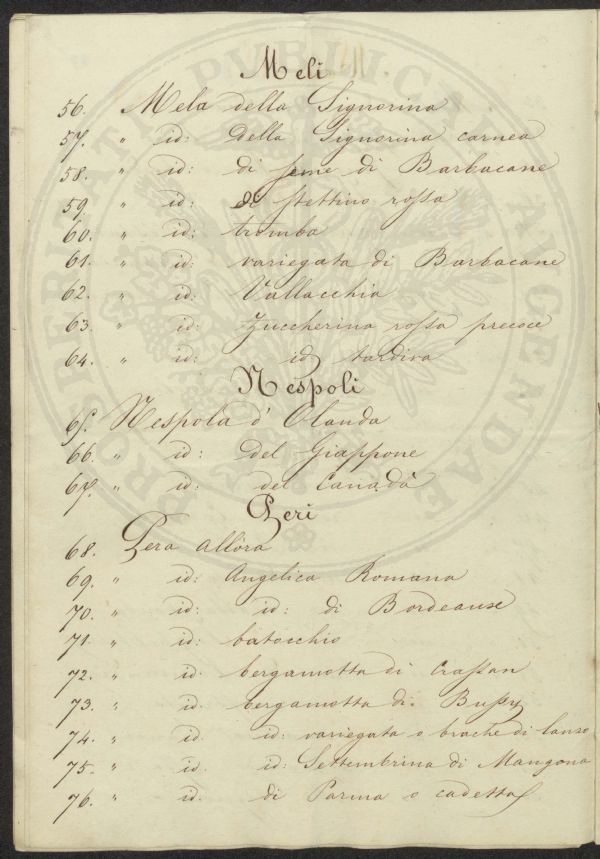 Meli
56. Mela della Signorina
57. " id: della Signorina carnea
58. " id: di seme di Barbacane
59. " id: di stettino rossa
60. " id: tromba
61. " id: variegata di Barbacane
62. " id: Vallacchia
63. " id: Zuccherina rossa precoce
64. " id: id tardiva
Nespoli
65. Nespola d' Olanda
66. " id: del Giappone
67. " id: del Canadà
Peri
68. Pera allòra
69. " id: Angelica Romana
70. " id: id: di Bordeause
71 " id: batocchio
72. " id. bergamotta di Crassan
73. " id. bergamotta di Bussy
74. " id. id: variegata o brache di lanso
75. " id. id: Settembrina di Mangona
76. " id. di Parma o cadetta
PROSPERITATI PVBLICAE AVGENDAE